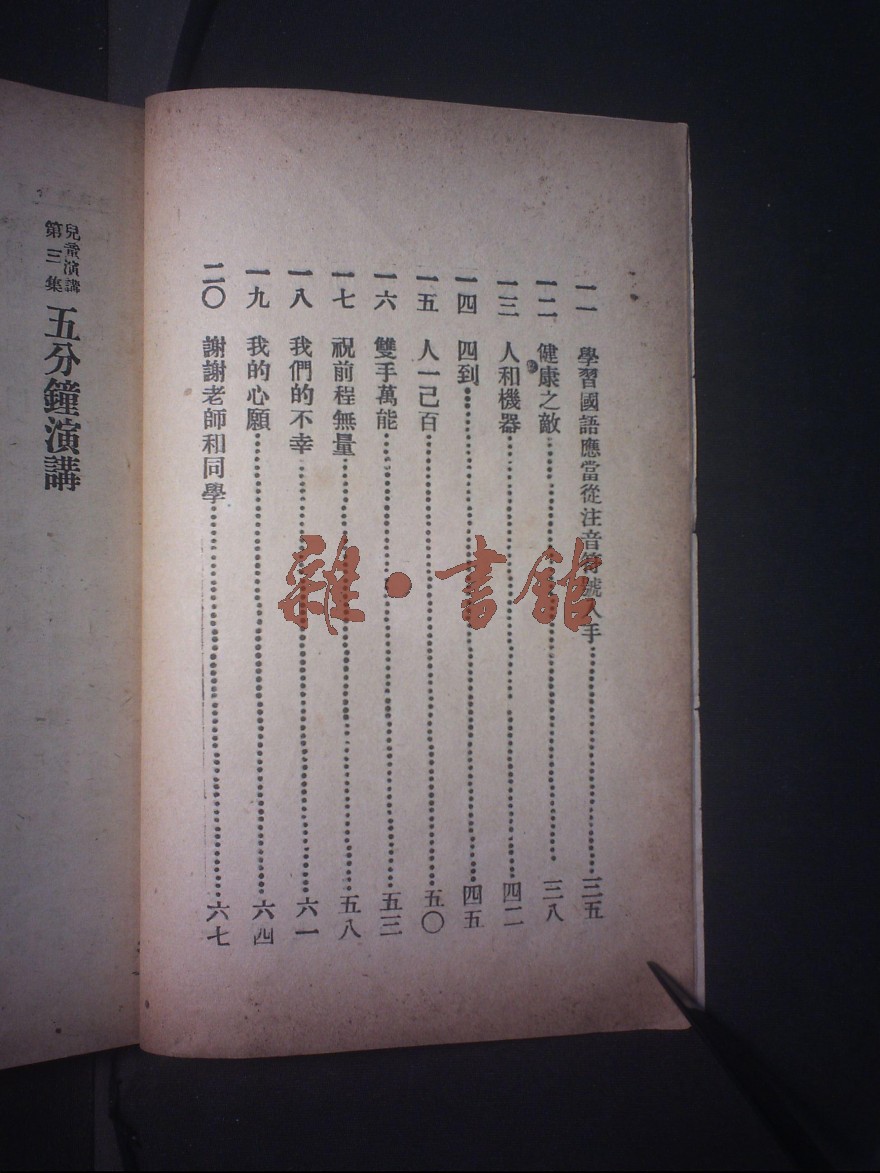 一一 學習國語應當從注音符號入手 三五
一二 健康之敵 三八
一三 人和機器 四二
一四 四到 四五
一五 人一己百 五〇
一六 雙手萬能 五三
一七 祝前程無量 五八
一八 我們的不幸 六一
一九 我的心願 六四
二〇 謝謝老師和同學 六七
兒童演講
第三集
五分鐘演講
雜·書館